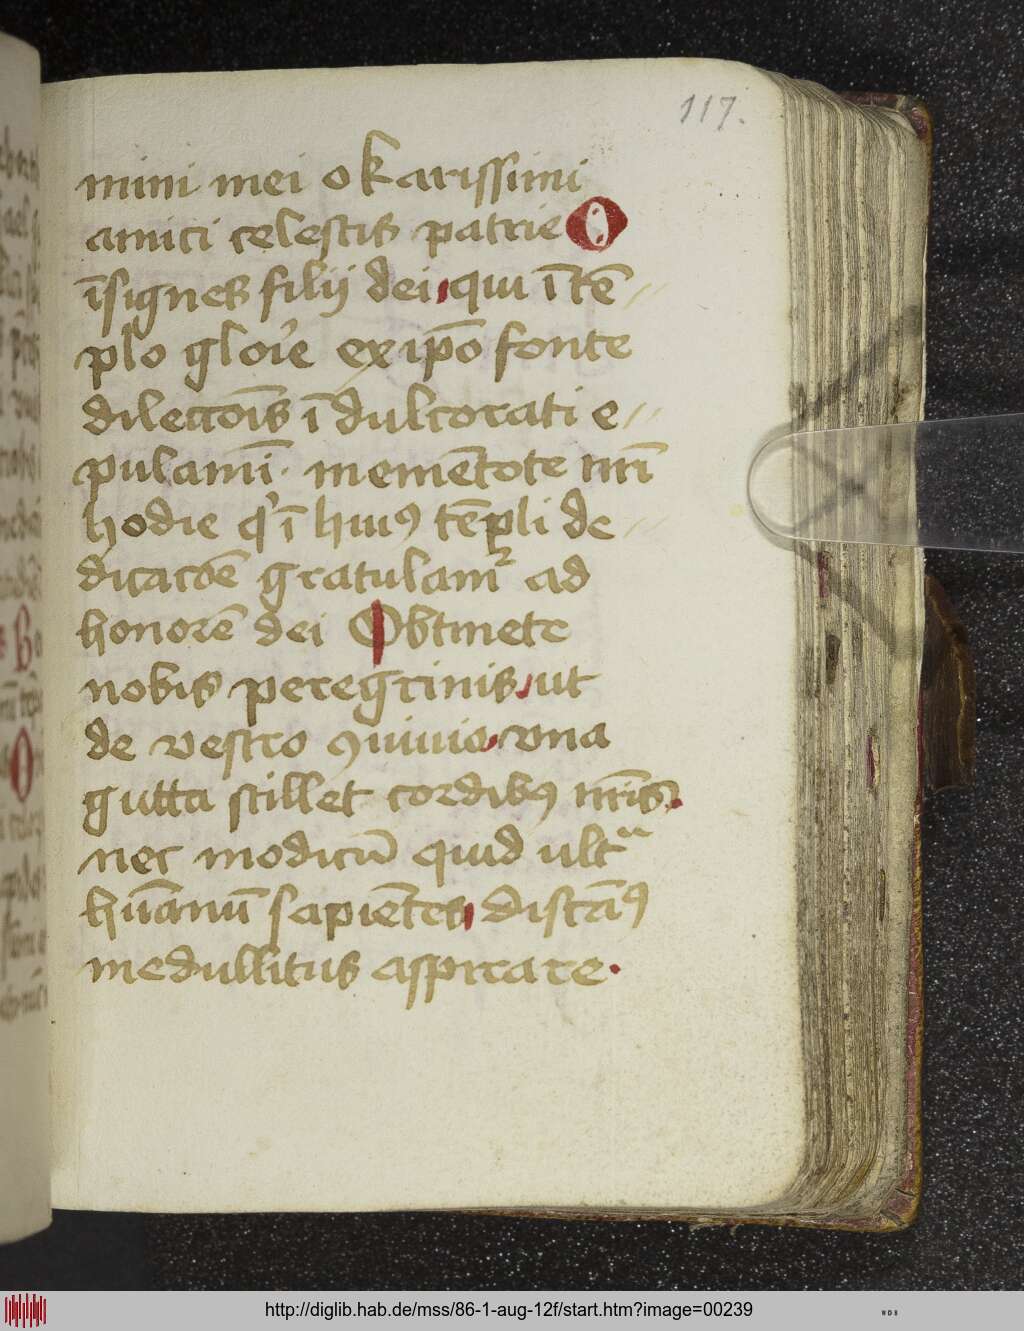 117.
mini mei o karissimi
amici celestis patrie O
īsignes filij dei, qui ī tē//
plo gloīe ex ip̄o fonte
dilecc̄oīs ī dulcorati e//
pulamī. memētote nr̄i
hodie qͥ ī huiꝰ tēpli de//
dicac̄oē gratulamr̄ ad
honorē dei Obtinete
nobis peregrinis, ut
de vestro ꝯuiuio, vna
gutta stillet cordibꝰ nr̄is.
nec modicū quid ultͣ
hūanū sapiētes, discāꝰ
medullitus asspirare.
http://diglib.hab.de/mss/86-1-aug-12f/start.htm?image=00239